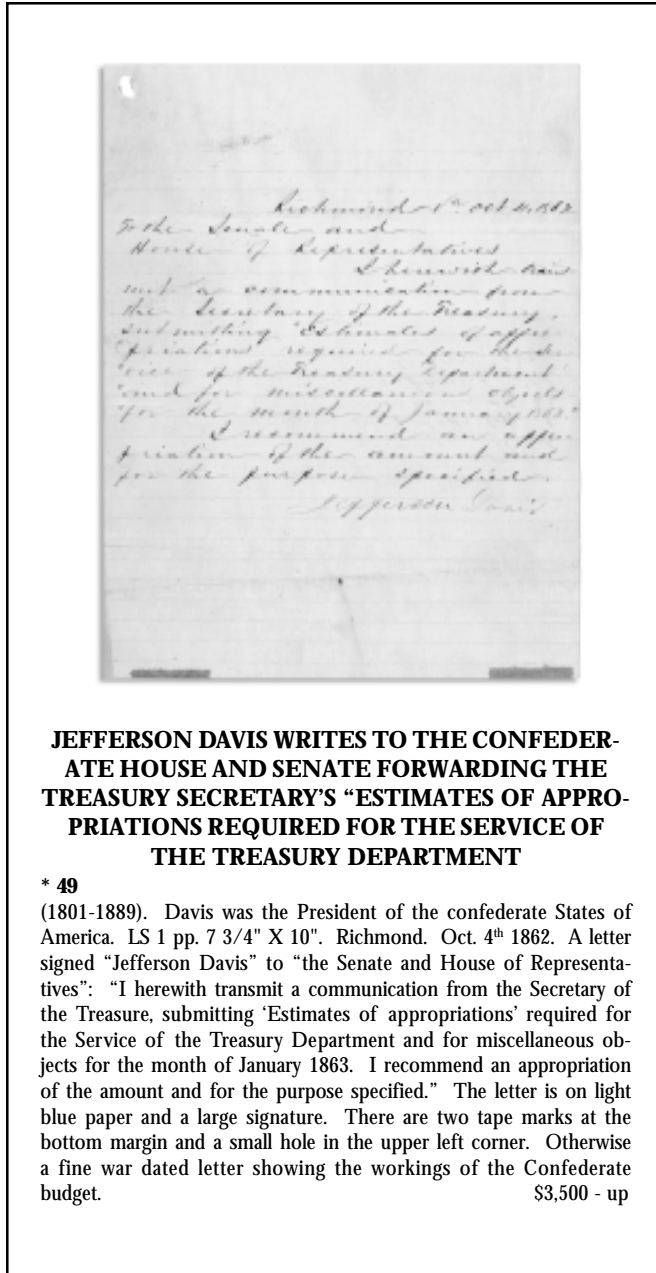 Richmond Va. Oct 4, 1862
To the Senate and
House of Representatives
I herewith trans
mit a communication from
the Secretary of the Treasury,
submitting "Estimates of appro
"priations required for the Ser
"vice of the Treasury Department
"and for miscellaneous objects
"for the month of January 1863."
I recommend an appro
priation of the amount and
for the purpose specified.
Jefferson Davis
JEFFERSON DAVIS WRITES TO THE CONFEDER-
ATE HOUSE AND SENATE FORWARDING THE
TREASURY SECRETARY'S “ESTIMATES OF APPRO-
PRIATIONS REQUIRED FOR THE SERVICE OF
THE TREASURY DEPARTMENT
* 49
(1801-1889). Davis was the President of the confederate States of
America. LS 1 pp. 7 3/4" X 10". Richmond. Oct. 4th 1862. A letter
signed “Jefferson Davis” to “the Senate and House of Representa-
tives”: “I herewith transmit a communication from the Secretary of
the Treasure, submitting ‘Estimates of appropriations’ required for
the Service of the Treasury Department and for miscellaneous ob-
jects for the month of January 1863. I recommend an appropriation
of the amount and for the purpose specified.” The letter is on light
blue paper and a large signature. There are two tape marks at the
bottom margin and a small hole in the upper left corner. Otherwise
a fine war dated letter showing the workings of the Confederate
budget. $3,500 - up